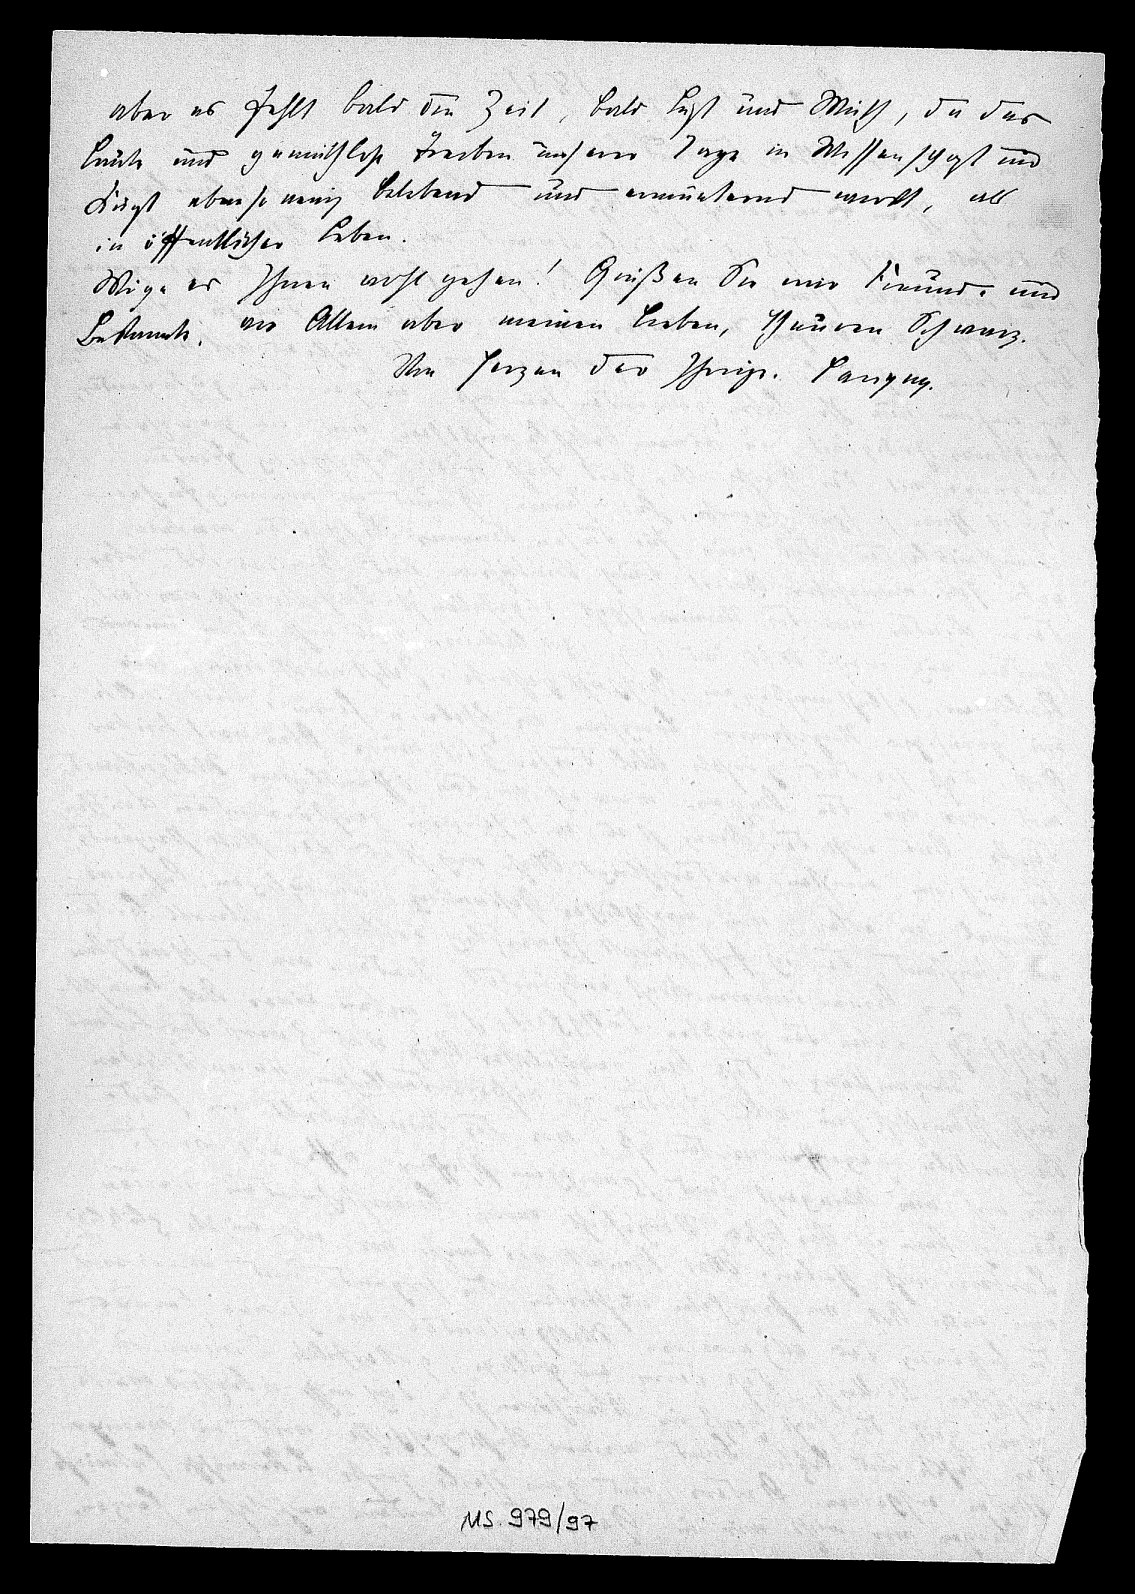 aber es fehlt bald die Zeit, bald Lust und Muth, da das
laute und gemüthlose Treiben unserer Tage in Wissenschaft und
Kunst ebenso wenig belebend und ermunternd wirkt, als
in öffentlicher Leben.
Möge es Ihnen wohl gehen! Grüßen Sie mir Freunde und
Bekannte, vor Allem aber meinen lieben, theuren Schwarz.
Von Herzen der Ihrige.
MS. 979/97